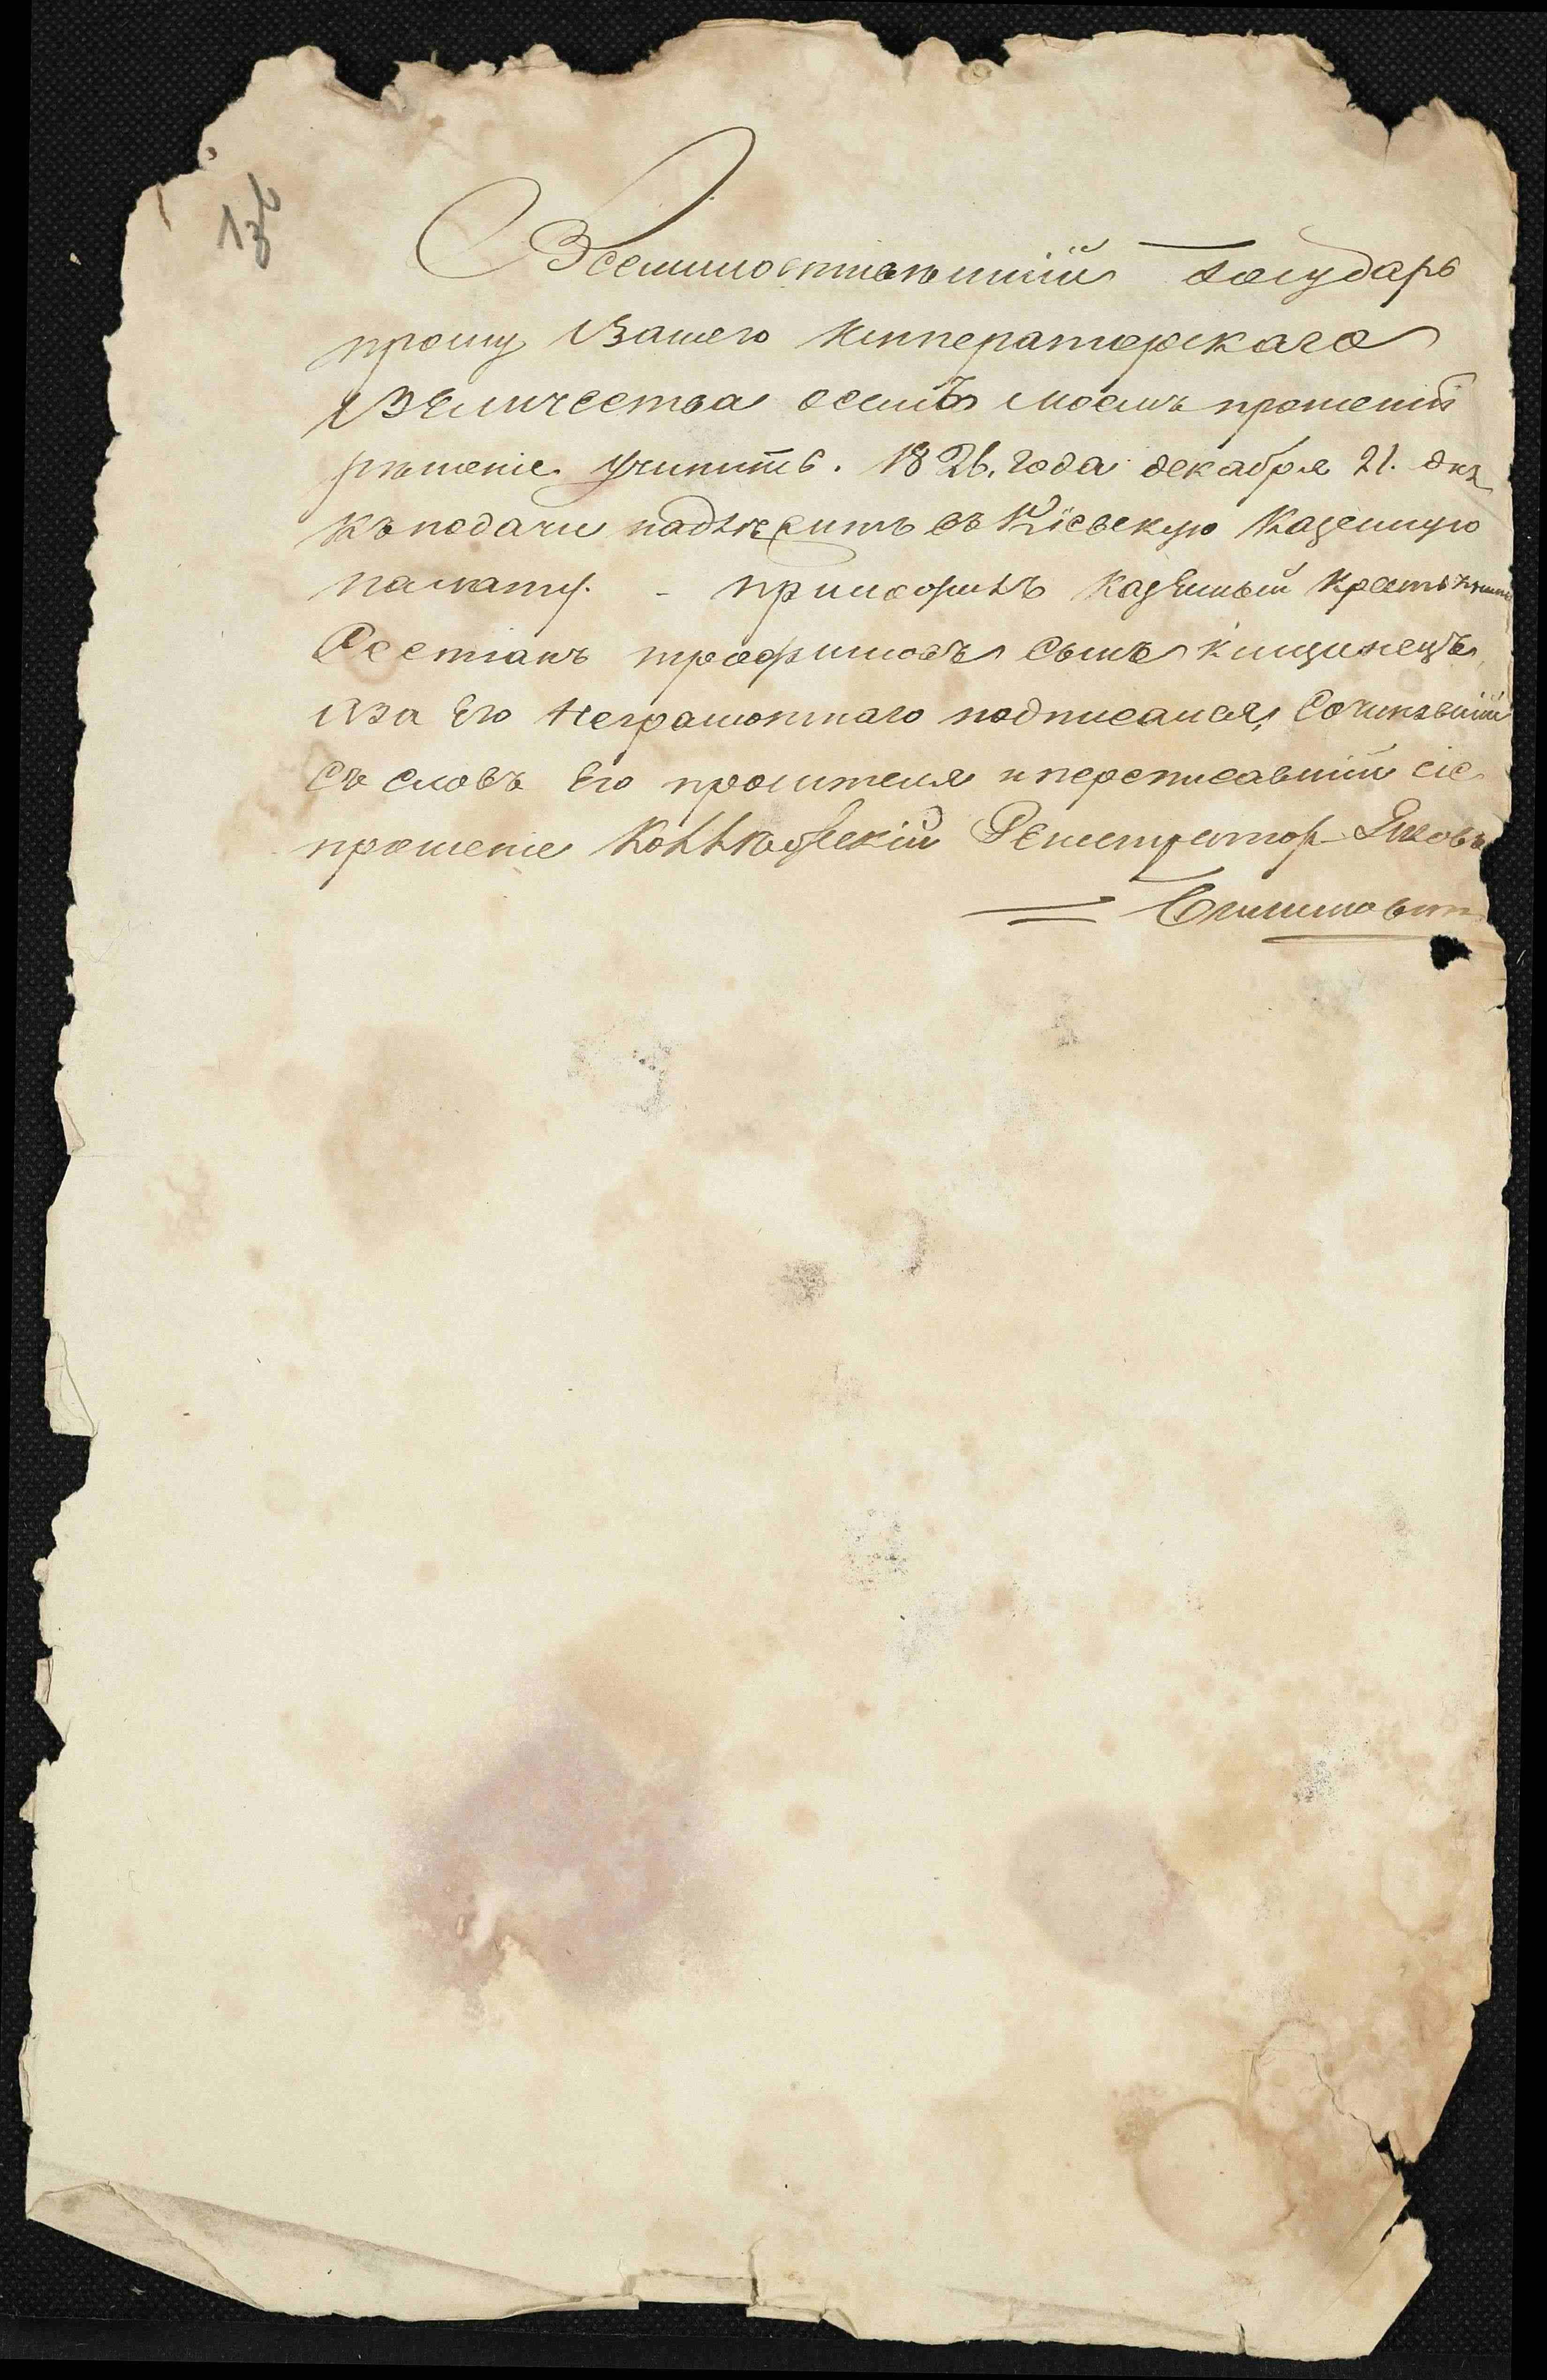 Всемилостивѣйшій Государь
прошу Вашего Императорскаго
Величества осемъ моемъ прошеніи
рѣшеніе учинить. 1826. года декабря 21. дня
къ подачи надлежитъ въ Кіевскую Казенную
палату. -  казенный крестьянинъ
трофимовъ сынъ кищинецъ
Аза Его неграмотнаго подписался, Сочинявшій
съ словъ Его просителя и переписавшій сіе
прошеніе Коллежскій Регистратор Яковъ